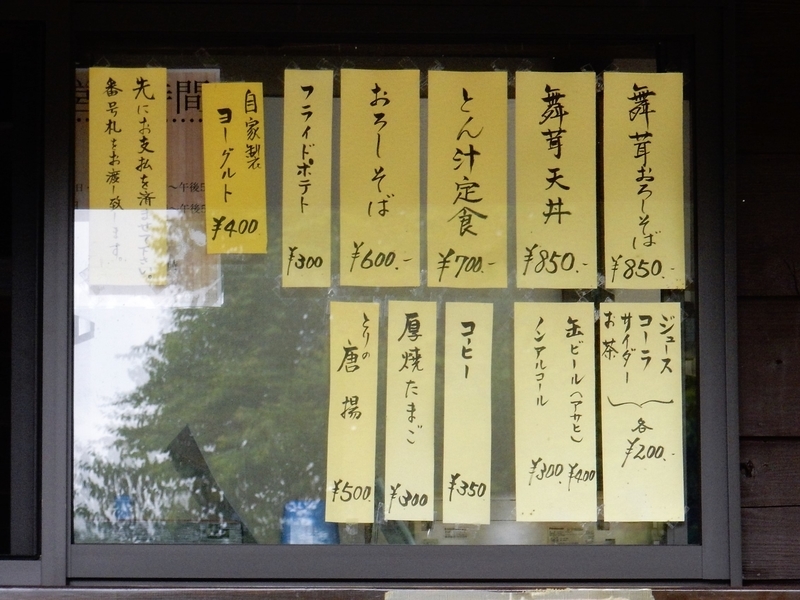 舞茸おろしそば
¥850.-
舞茸天丼
¥850.-
とん汁定食
¥700.-
おろしそば
¥600.-
フライドポテト
¥300
自家製
ヨーグルト
¥400
先にお支払を済ませて下さい
番号札をお渡し致します。
ジュース
コーラ
サイダー
お茶
各
¥200.-
缶ビール(アサヒ)
¥400
ノンアルコール
¥300
コーヒー
¥350
厚焼たまご
¥300
とりの唐揚
¥500